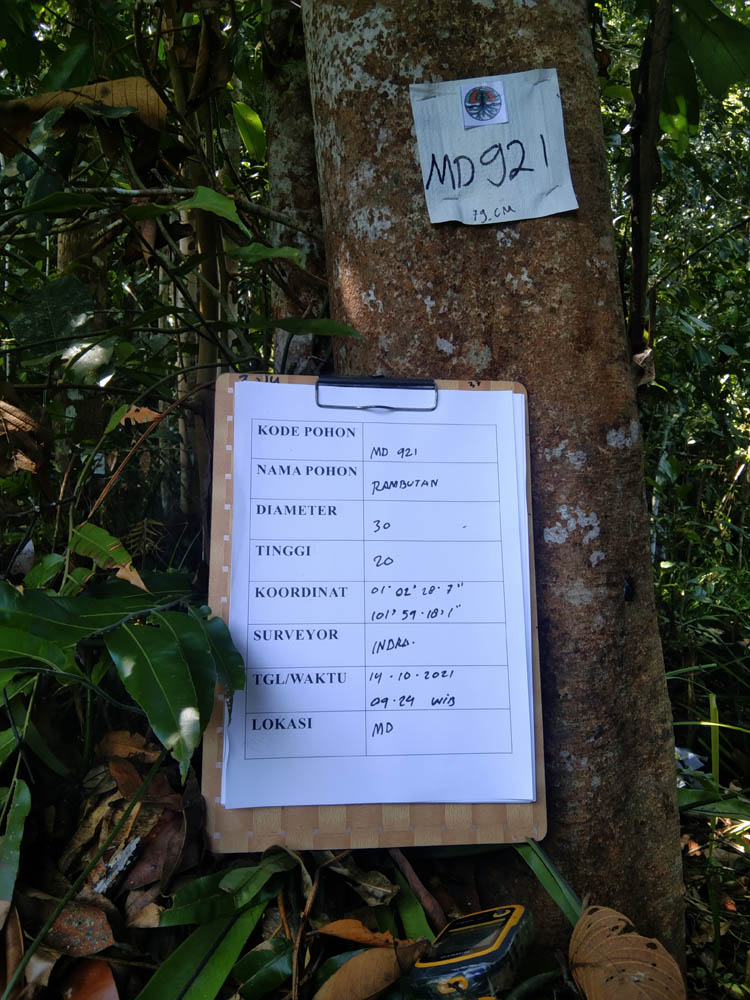 MD 921
79 CM
KODE POHON MD 921
NAMA POHON RAMBUTAN
DIAMETER 30
TINGGI 20
KOORDINAT 01° 02' 28.7"
101° 59.18.1"
SURVEYOR INDRA.
TGL/WAKTU 14.10.2021
09.24 WIB
LOKASI MD